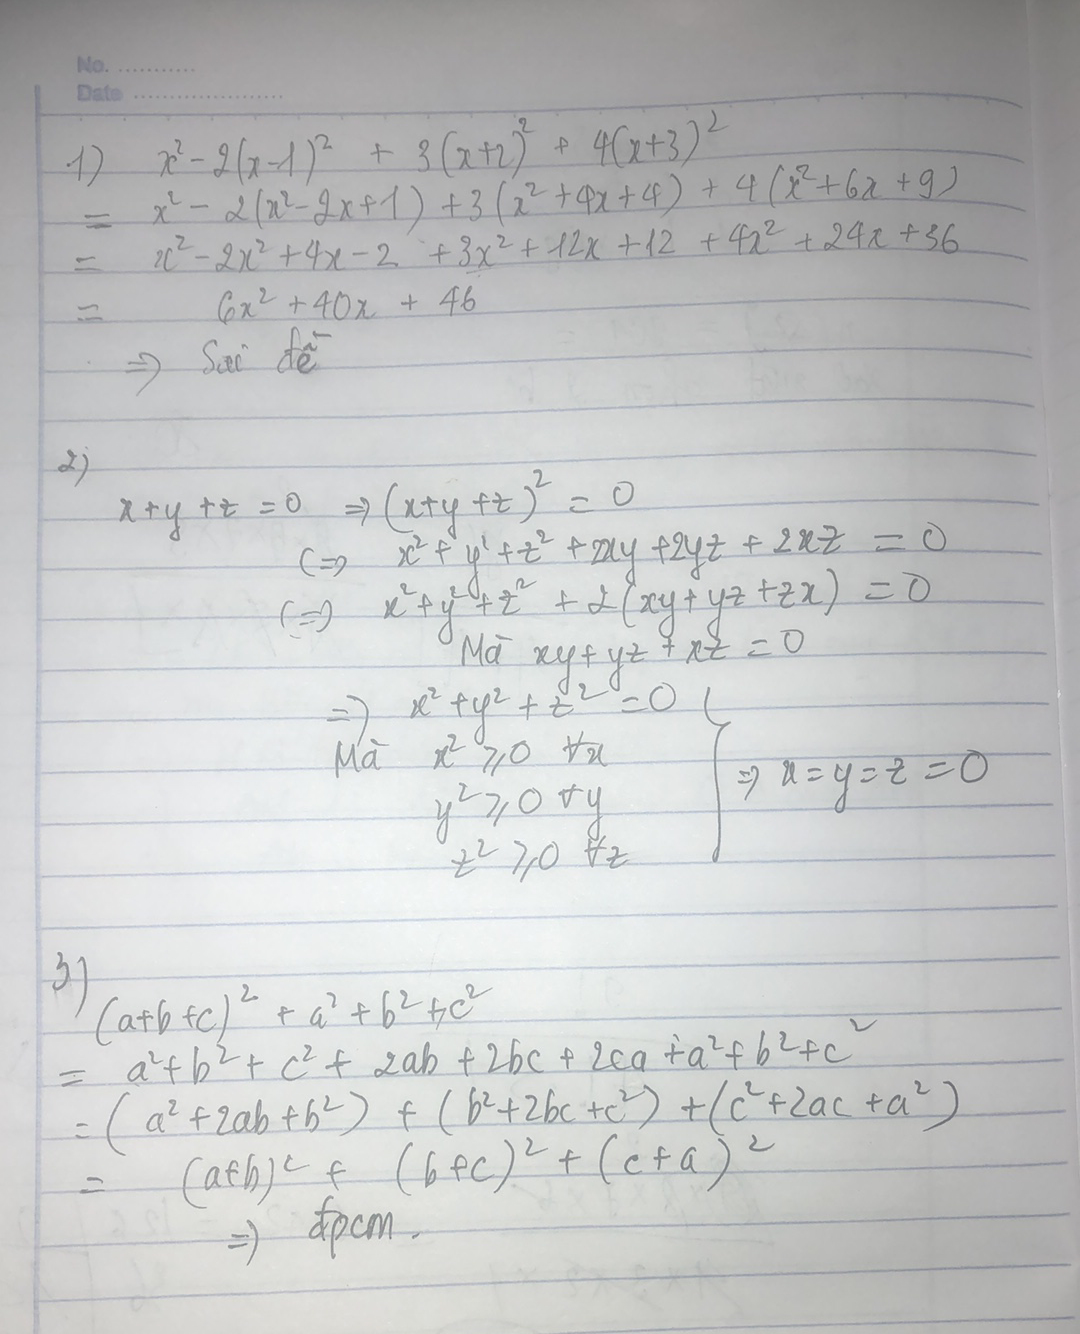 No. ...........
Date .....................
1) x² - 2(x-1)² + 3(x+2)² + 4(x+3)²
= x² - 2(x² - 2x + 1) + 3(x² + 4x + 4) + 4(x² + 6x + 9)
= x² - 2x² + 4x - 2 + 3x² + 12x + 12 + 4x² + 24x + 36
= 6x² + 40x + 46
=> Sai đề
2)
x + y + z = 0 => (x + y + z)² = 0
(=> x² + y² + z² + 2xy + 2yz + 2xz = 0
(=) x² + y² + z² + 2(xy + yz + zx) = 0
Mà xy + yz + xz = 0
=> x² + y² + z² = 0
Mà x² ⩾ 0 ∀x
=> x = y = z = 0
y² ⩾ 0 ∀y
z² ⩾ 0 ∀z
3)
(a+b+c)² + a² + b² + c²
= a² + b² + c² + 2ab + 2bc + 2ca + a² + b² + c²
= (a² + 2ab + b²) + (b² + 2bc + c²) + (c² + 2ac + a²)
= (a+b)² + (b+c)² + (c+a)²
=> đpcm.